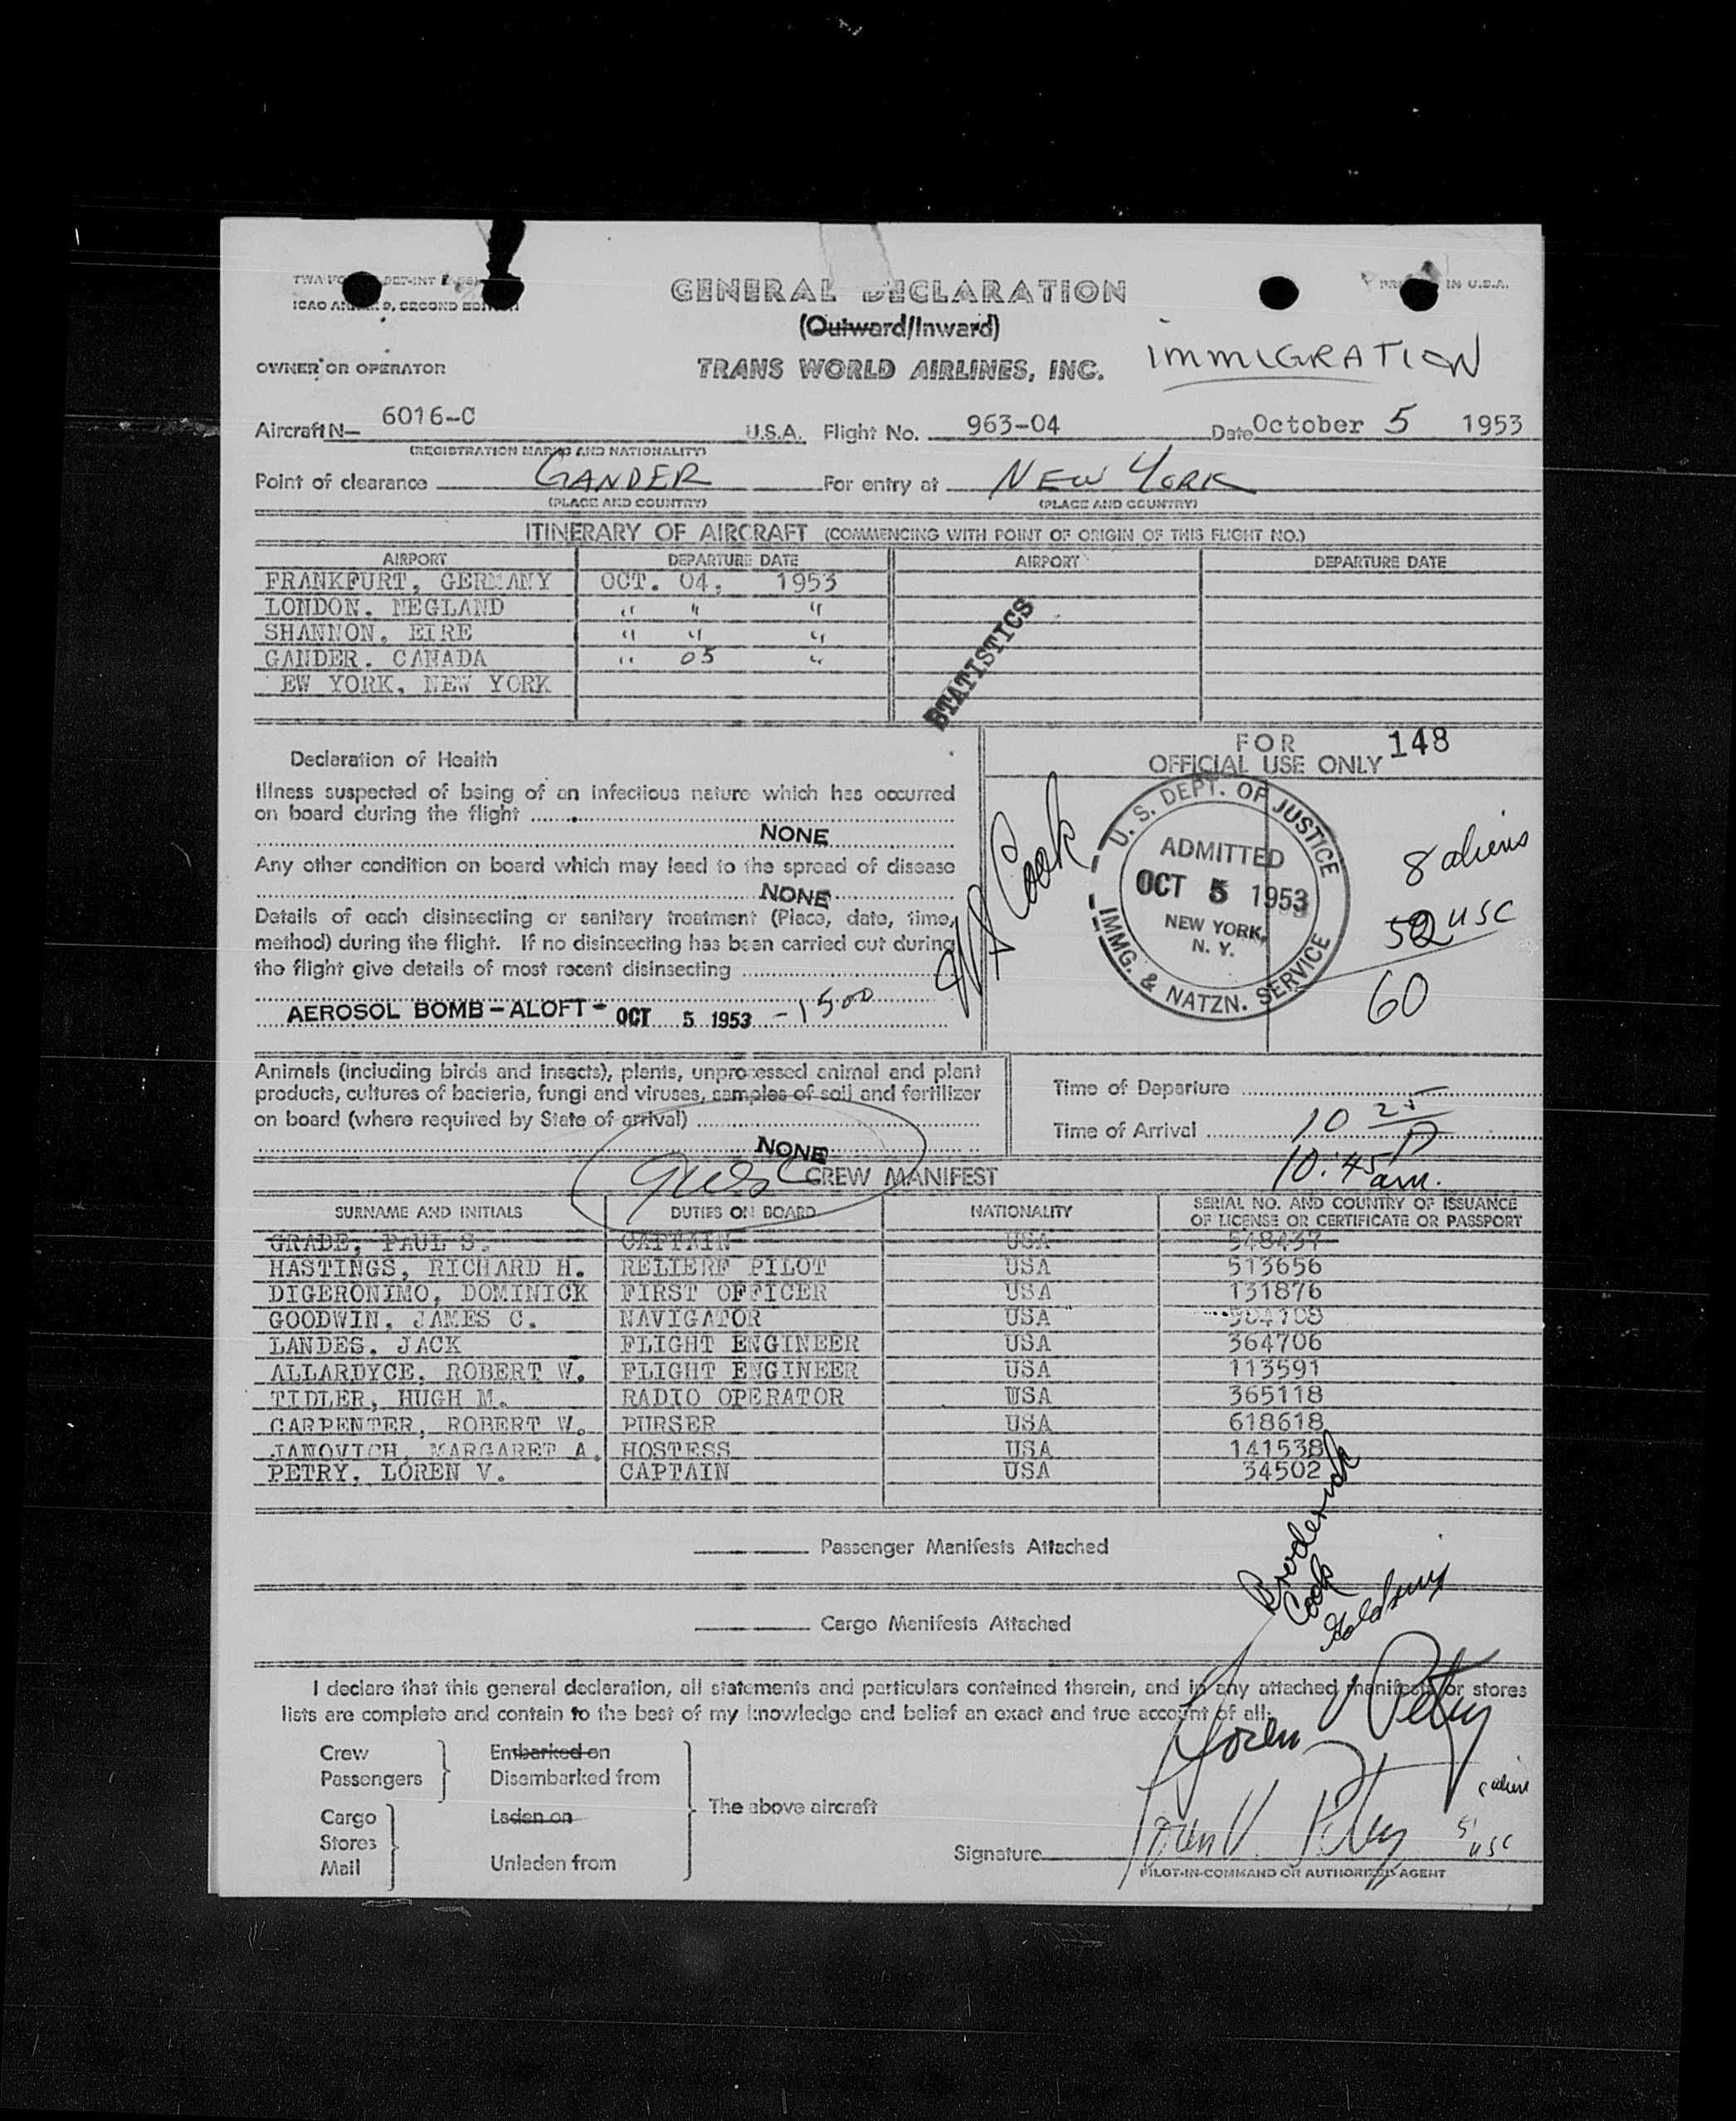 GENERAL DECLARATION
ICAO ANNEX 9, SECOND EDITION
PRINTED IN U.S.A.
(Outward/Inward)
OWNER OR OPERATOR
TRANS WORLD AIRLINES, INC.
IMMIGRATION
Aircraft N— 6016-C U.S.A. Flight No. 963-04 Date October 5 1953
(REGISTRATION MARKS AND NATIONALITY)
Point of clearance GANDER For entry at NEW YORK
(PLACE AND COUNTRY) (PLACE AND COUNTRY)
ITINERARY OF AIRCRAFT (COMMENCING WITH POINT OF ORIGIN OF THIS FLIGHT NO.)
AIRPORT DEPARTURE DATE AIRPORT DEPARTURE DATE
FRANKFURT, GERMANY OCT. 04, 1953
LONDON, NEGLAND " " "
SHANNON, EIRE " " "
GANDER. CANADA " 05 "
EW YORK, NEW YORK
STATISTICS
Declaration of Health
Illness suspected of being of an infectious nature which has occurred
on board during the flight
NONE
Any other condition on board which may lead to the spread of disease
NONE
Details of each disinsecting or sanitary treatment (Place, date, time,
method) during the flight. If no disinsecting has been carried out during
the flight give details of most recent disinsecting
AEROSOL BOMB – ALOFT – OCT 5 1953 – 1500
FOR
OFFICIAL USE ONLY 148
Cook
U. S. DEPT. OF JUSTICE
ADMITTED
OCT 5 1953
NEW YORK,
N. Y.
IMMG. & NATZN. SERVICE
8 aliens
52 USC
60
Animals (including birds and insects), plants, unprocessed animal and plant
products, cultures of bacteria, fungi and viruses, samples of soil and fertilizer
on board (where required by State of arrival)
NONE
Time of Departure
Time of Arrival 10 25
10:45 am.
CREW MANIFEST
SURNAME AND INITIALS DUTIES ON BOARD NATIONALITY SERIAL NO. AND COUNTRY OF ISSUANCE
OF LICENSE OR CERTIFICATE OR PASSPORT
GRADE, PAUL S. CAPTAIN USA 548437
HASTINGS, RICHARD H. RELIERF PILOT USA 513656
DIGERONIMO, DOMINICK FIRST OFFICER USA 131876
GOODWIN, JAMES C. NAVIGATOR USA
LANDES, JACK FLIGHT ENGINEER USA 364706
ALLARDYCE, ROBERT W. FLIGHT ENGINEER USA 113591
TIDLER, HUGH M. RADIO OPERATOR USA 365118
CARPENTER, ROBERT W. PURSER USA 618618
JANOVICH, MARGARET A. HOSTESS USA 141538
PETRY, LOREN V. CAPTAIN USA 34502
Broderick
Cook
Passenger Manifests Attached
Cargo Manifests Attached
I declare that this general declaration, all statements and particulars contained therein, and in any attached manifests or stores
lists are complete and contain to the best of my knowledge and belief an exact and true account of all:
Loren V Petry
Crew
Passengers
Embarked on
Disembarked from
Cargo
Stores
Mail
Laden on
Unladen from
The above aircraft
Signature Loren V. Petry
51 USC
PILOT-IN-COMMAND OR AUTHORIZED AGENT